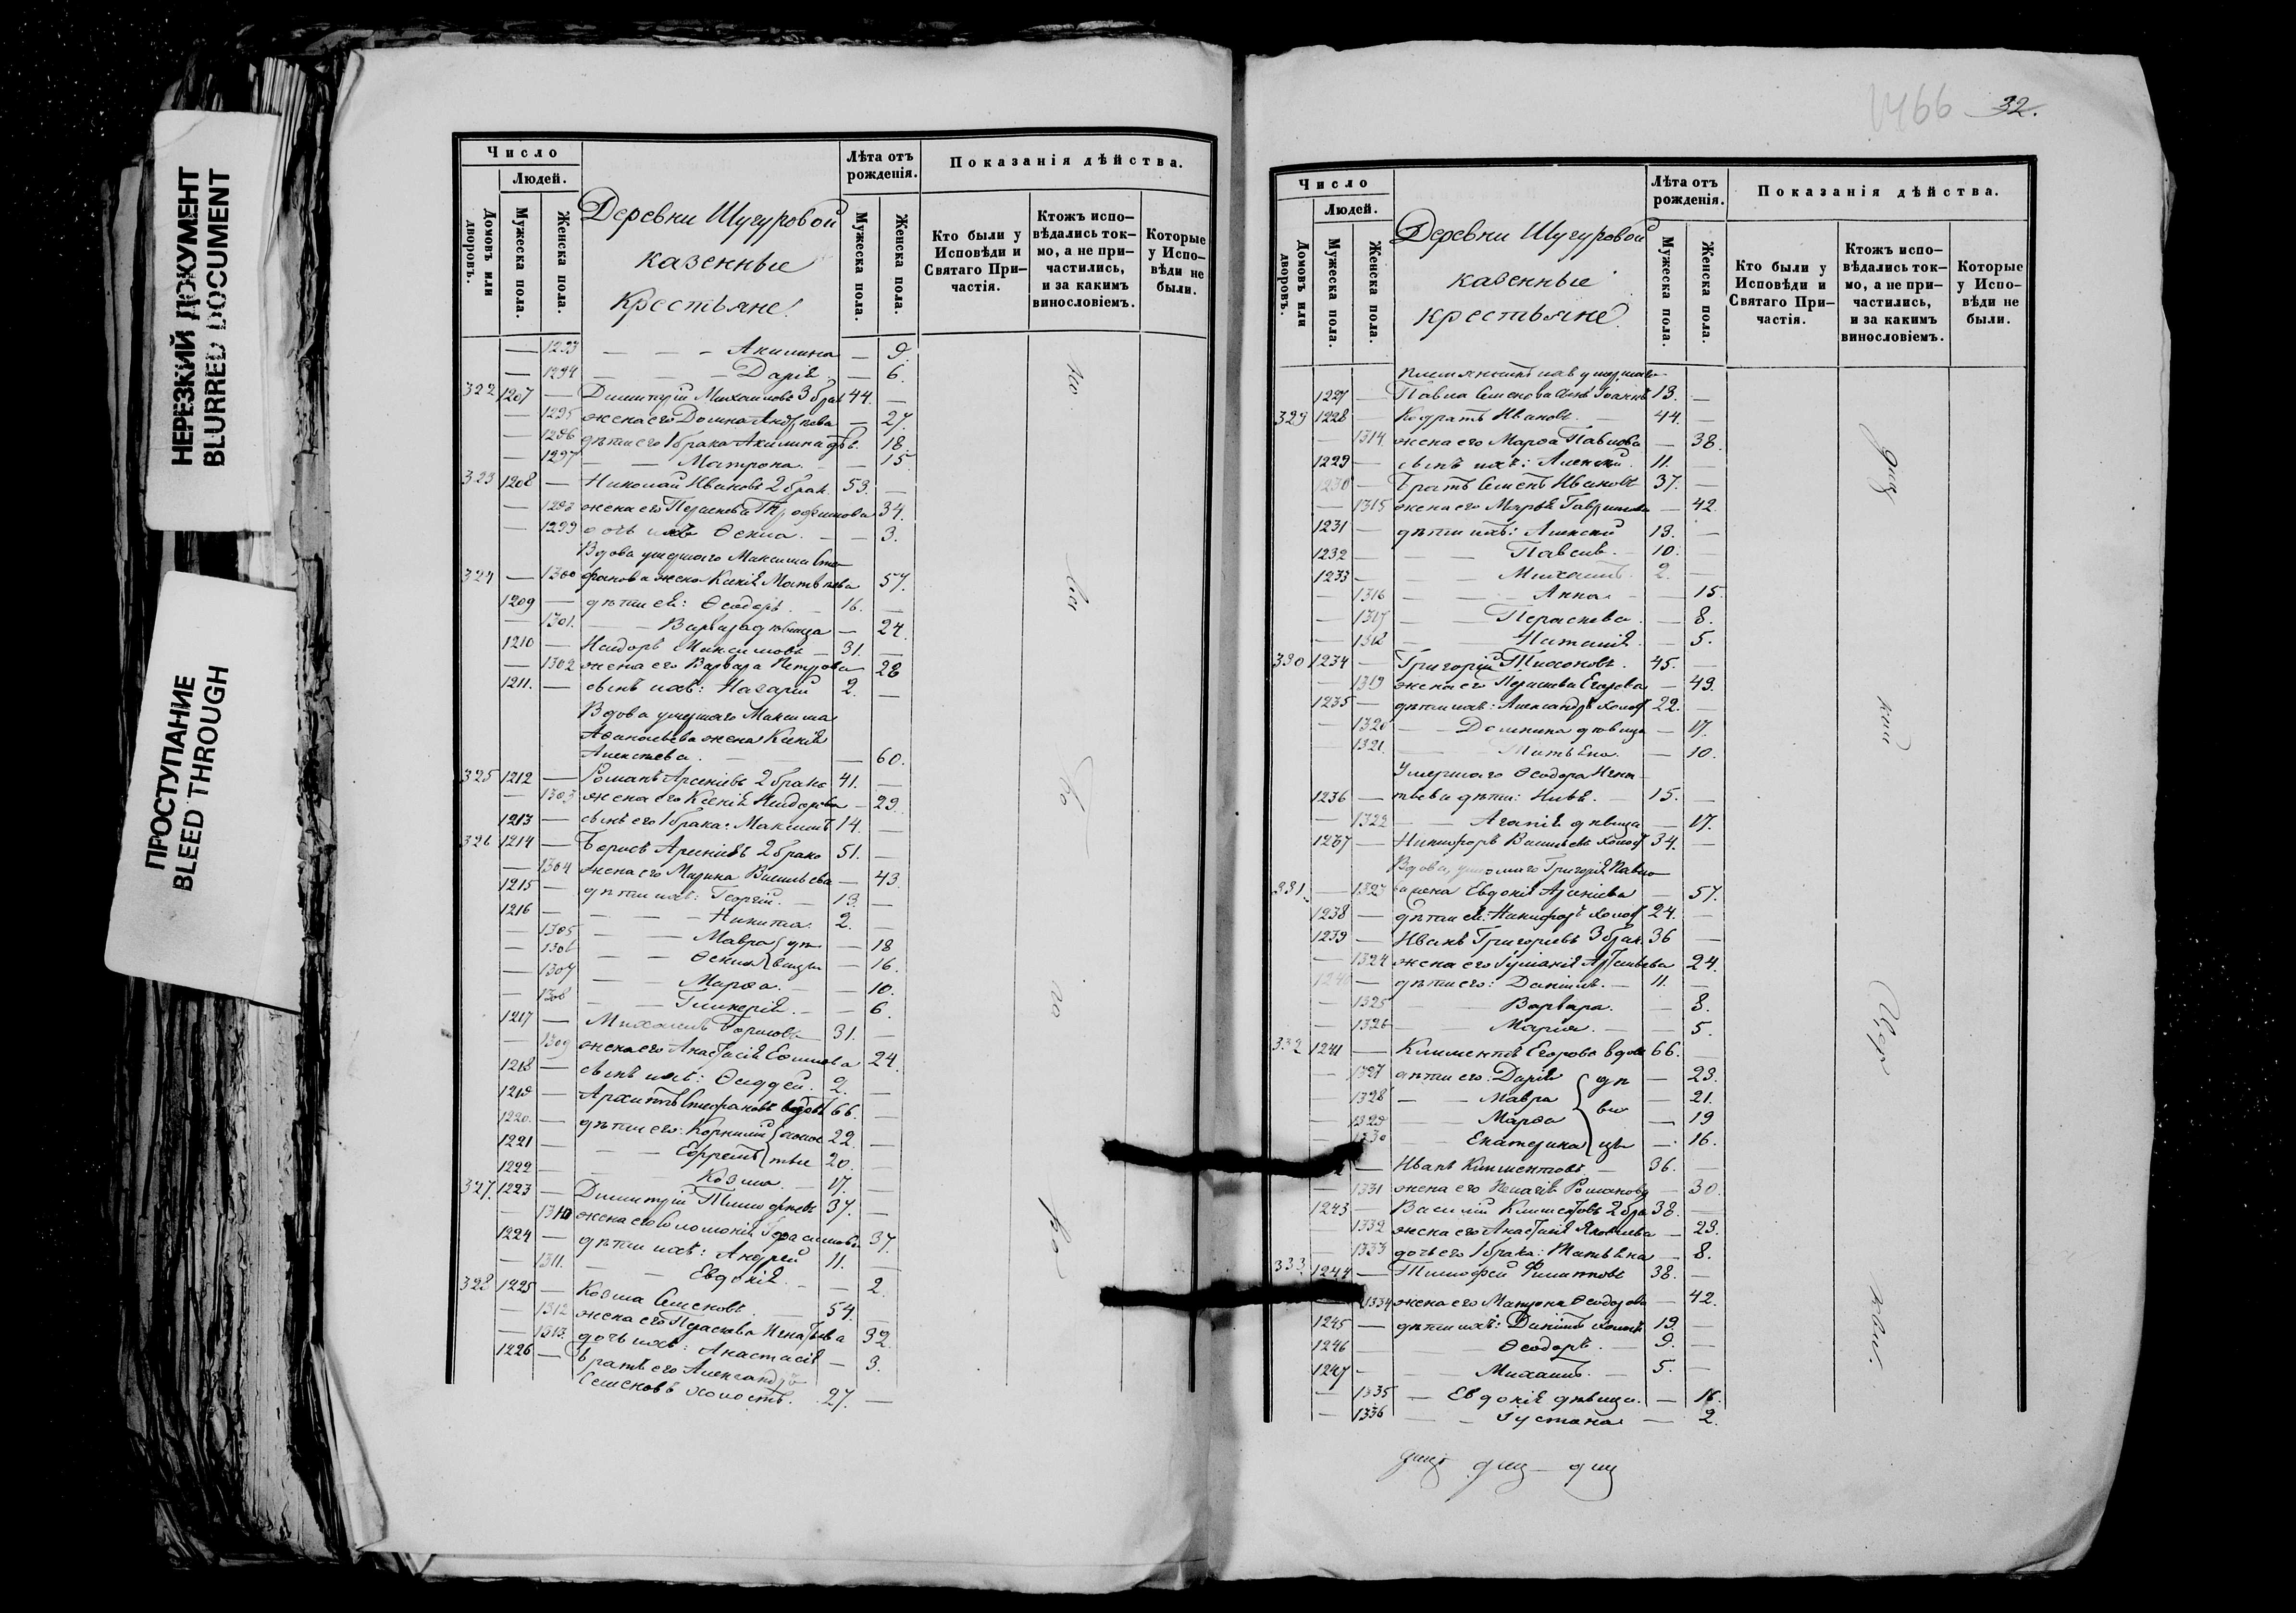 НЕРЕЗКИЙ ДОКУМЕНТ
BLURRED DOCUMENT
ПРОСТУПАНИЕ
BLEED THROUGH
Число
Людей.
Домовъ или дворовъ.
Мужеска пола.
Женска пола.
Деревни Шугуровой
казенные
Крестьяне.
Лѣта отъ рожденія.
Мужеска пола.
Женска пола.
Показанія дѣйства.
Кто были у Исповѣди и Святаго Причастія.
Ктожъ исповѣдались токмо, а не причастились, и за какимъ винословіемъ.
Которые у Исповѣди не были.
— 1293 — — — Акилина — 9.
— 1294 — — — Дарія — 6.
322 1207 — Димитрій Михаиловъ 3 брак 44. —
— 1295 жена его Домна Андреева — 27.
— 1296 дѣти его 1 брака Акилина дѣв. 18.
— 1297 — — Матрона — 15
323 1208 — Николай Ивановъ 2 брак. 53. —
— 1298 жена его Параскева Трофимова 34.
— 1299 дочь ихъ Ѳекла. — — 3.
Вдова умершаго Максима Сте
324 — 1300 фанова жена Ксенія Матвѣева 57.
1209 — дѣти ея: Ѳеодоръ. — 16. —
— 1301. — — Варвара дѣвица — 24.
1210 — Исидоръ Максимовъ — 31. —
— 1302 жена его Варвара Петрова — 28
1211. — сынъ ихъ: Назарій 2. —
Вдова умершаго Максима
Аѳанасьева жена Ксенія
Алексѣева. — — 60.
325 1212 — Романъ Арсеніевъ 2 брака 41. —
— 1303 жена его Ксенія Исидорова — 29.
1213 — сынъ его 1 брака: Максимъ 14. —
326 1214 — Борисъ Арсеніевъ 2 брака 51. —
— 1304 жена его Марина Васильева — 43.
1215 — дѣти ихъ: Георгій. — 13. —
1216 — — — — Никита. 2. —
— 1305 — — Мавра дѣ — 18
— 1306 — — Ѳекла вицы — 16.
— 1307 — — Марѳа. — — 10.
— 1308 — — Гликерія. — — 6.
1217 — Михаилъ Борисовъ 31. —
— 1309 жена его Анастасія Еѳимова 24.
1218 — сынъ ихъ: Ѳаддей. 2. —
1219 — Архиппъ Стефановъ вдовъ 66. —
1220. — дѣти его: Корнилій холос 22. —
1221 — — — Ефремъ тые 20. —
1222 — — — Козма. — 17. —
327. 1223 — Димитрій Тимофеевъ 37. —
— 1310 жена его Соломонія Герасимова 37.
1224 — дѣти ихъ: Андрей 11. —
— 1311. — — Евдокія. — — 2.
328 1225 — Козма Семеновъ. — 54. —
— 1312 жена его Параскева Игнатьева 32.
— 1313. дочь ихъ: Анастасія — 3.
1226 — братъ его Александръ
Семеновъ холостъ. 27. —
1466 32.
Число
Людей.
Домовъ или дворовъ.
Мужеска пола.
Женска пола.
Деревни Шугуровой
казенные
крестьяне.
Лѣта отъ рожденія.
Мужеска пола.
Женска пола.
Показанія дѣйства.
Кто были у Исповѣди и Святаго Причастія.
Ктожъ исповѣдались токмо, а не причастились, и за какимъ винословіемъ.
Которые у Исповѣди не были.
Племянникъ ихъ умершаго
1227 — Павла Семенова сынъ Іоаннъ 13. —
329 1228 — Кодратъ Ивановъ. — 44. —
— 1314. жена его Марѳа Павлова — 38.
1229 — сынъ ихъ: Алексѣй. 11. —
1230 — Братъ Семенъ Ивановъ 37. —
— 1315 жена его Марья Гаврилова — 42.
1231 — дѣти ихъ: Алексѣй 13. —
1232 — — — Павелъ. — 10. —
1233 — — — Михаилъ. 2. —
— 1316 — — Анна — — 15.
— 1317 — — Параскева. — 8.
— 1318 — — Наталія. — 5.
330 1234 — Григорій Тихоновъ. 45. —
— 1319 жена его Параскева Егорова — 49.
1235 — дѣти ихъ: Александръ холос 22. —
— 1320 — — Домнина дѣвица — 17.
— 1321. — — Татьяна — 10.
Умершаго Ѳеодора Игна
1236 — тьева дѣти: Илья. — 15. —
— 1322 — — Агапія дѣвица — 17.
1237 — Никифоръ Васильевъ холос 34. —
Вдова, умершаго Григорія Павло
331. — 1323 ва жена Евдокія Арсеніева — 57.
1238 — дѣти ея: Никифоръ холос 24. —
1239 — Иванъ Григорьевъ 3 брак. 36 —
— 1324 жена его Іуліанія Артемьева 24.
1240 — дѣти его: Даніилъ. — 11. —
— 1325 — Варвара. — 8.
— 1326 — Марія. — — 5.
332 1241 — Климентъ Егоровъ вдов 66. —
— 1327 дѣти его: Дарія дѣ — 23.
— 1328 — — Мавра ви — 21.
— 1329 — — Марѳа — 19
— 1330 — — Екатерина цы — 16.
— Иванъ Климентовъ. — 36. —
— 1331 жена его Пелагія Романова — 30.
1243 — Василій Климентовъ 2 бра 38. —
— 1332 жена его Анастасія Яковлева — 23.
— 1333 дочь его 1 брака: Татьяна — 8.
333. 1244 — Тимофей Филипповъ 38. —
1334 жена его Матрона Ѳеодорова — 42.
1245 — дѣти ихъ: Даніилъ холост 19. —
1246 — — — Ѳеодоръ. — 9. —
1247 — — — Михаилъ. — 5. —
— 1335 — Евдокія дѣвица. — 16.
— 1336 — — Іустина — 2.